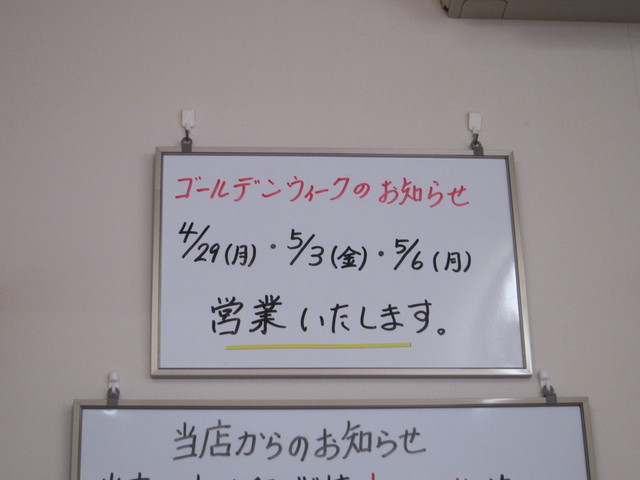 ゴールデンウィークのお知らせ
4/29(月)・5/3(金)・5/6(月)
営業いたします。
当店からのお知らせ